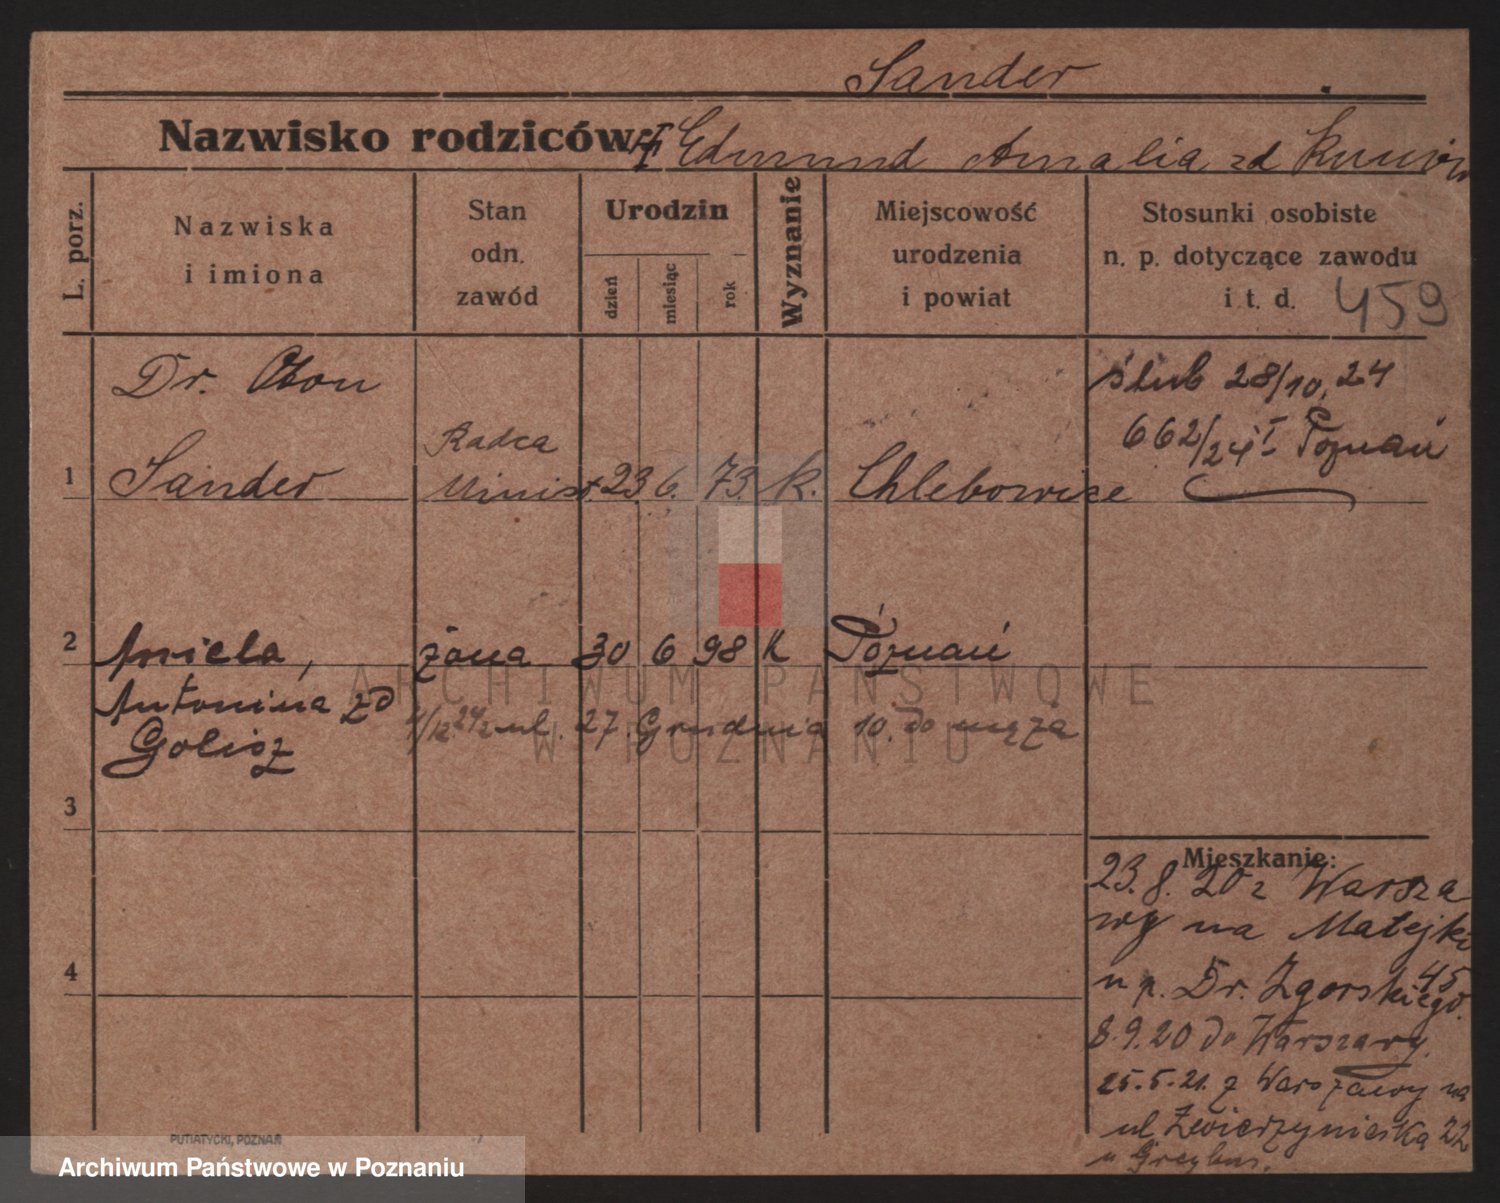 Sander
Nazwisko rodziców: Edmund Amalia zd
L. porz.
Nazwiska
i imiona
Stan
odn.
zawód
Urodzin
dzień
miesiąc
rok
Wyznanie
Miejscowość
urodzenia
i powiat
Stosunki osobiste
n. p. dotyczące zawodu
i t. d. 459
Dr. Oton
1 Sander Radca
Minist 23 6. 73. k. Chlebowice
ślub 28/10. 24
662/24 I Poznań
2 Aniela, żona 30 6 98 k Poznań
Antonina zd
Golisz
ul. 27. Grudnia 10. do męża
3
4
Mieszkanie:
23. 8. 20 z Warsza
wy na Matejki
45
u p. Dr. Zgorskiego.
8. 9. 20 do Warszawy.
25. 5. 21. z Warszawy na
ul. Zwierzyniecką 22
u
PUTIATYCKI, POZNAŃ
ARCHIWUM PAŃSTWOWE
W POZNANIU
Archiwum Państwowe w Poznaniu